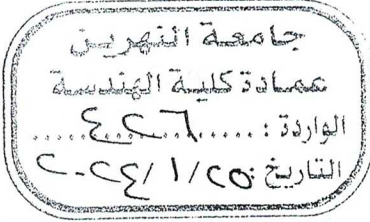 جامعة النهرين
عمادة كلية الهندسة
الواردة : ٤٢٦
التاريخ : ٢٠٢٤/١/٢٥